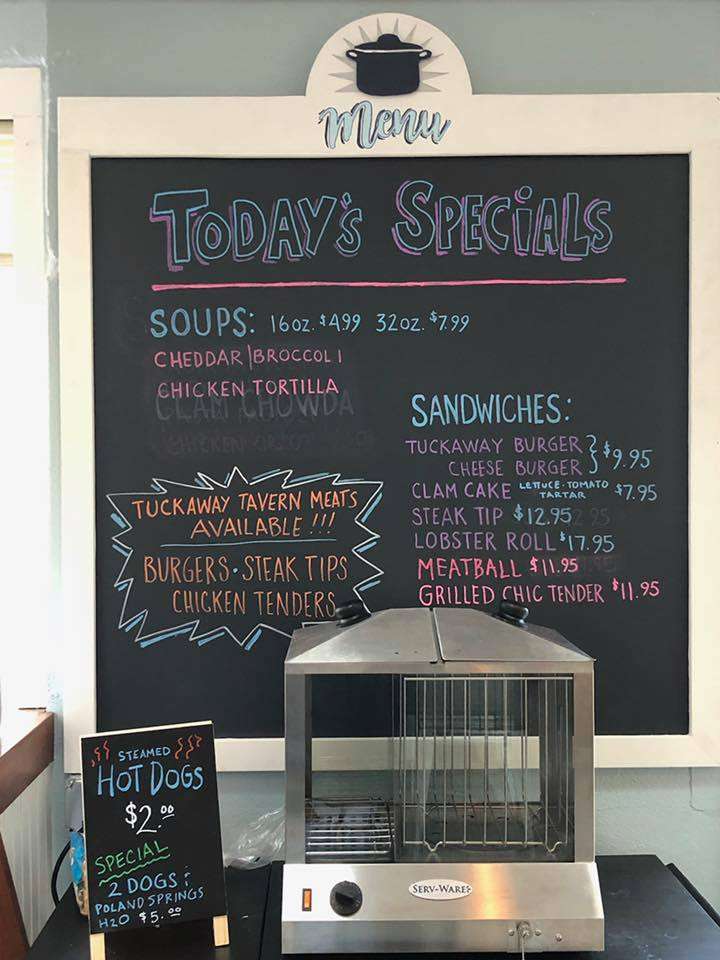 Menu
TODAY'S SPECIALS
SOUPS: 16oz. $4.99 32oz. $7.99
CHEDDAR|BROCCOLI
CHICKEN TORTILLA
CLAM CHOWDA
SANDWICHES:
TUCKAWAY BURGER
CHEESE BURGER } $9.95
CLAM CAKE LETTUCE·TOMATO TARTAR $7.95
STEAK TIP $12.95
LOBSTER ROLL $17.95
MEATBALL $11.95
GRILLED CHIC TENDER $11.95
TUCKAWAY TAVERN MEATS
AVAILABLE!!!
BURGERS·STEAK TIPS
CHICKEN TENDERS
STEAMED
HOT DOGS
$2.00
SPECIAL
2 DOGS &
POLAND SPRINGS
H2O $5.00
SERV-WARE